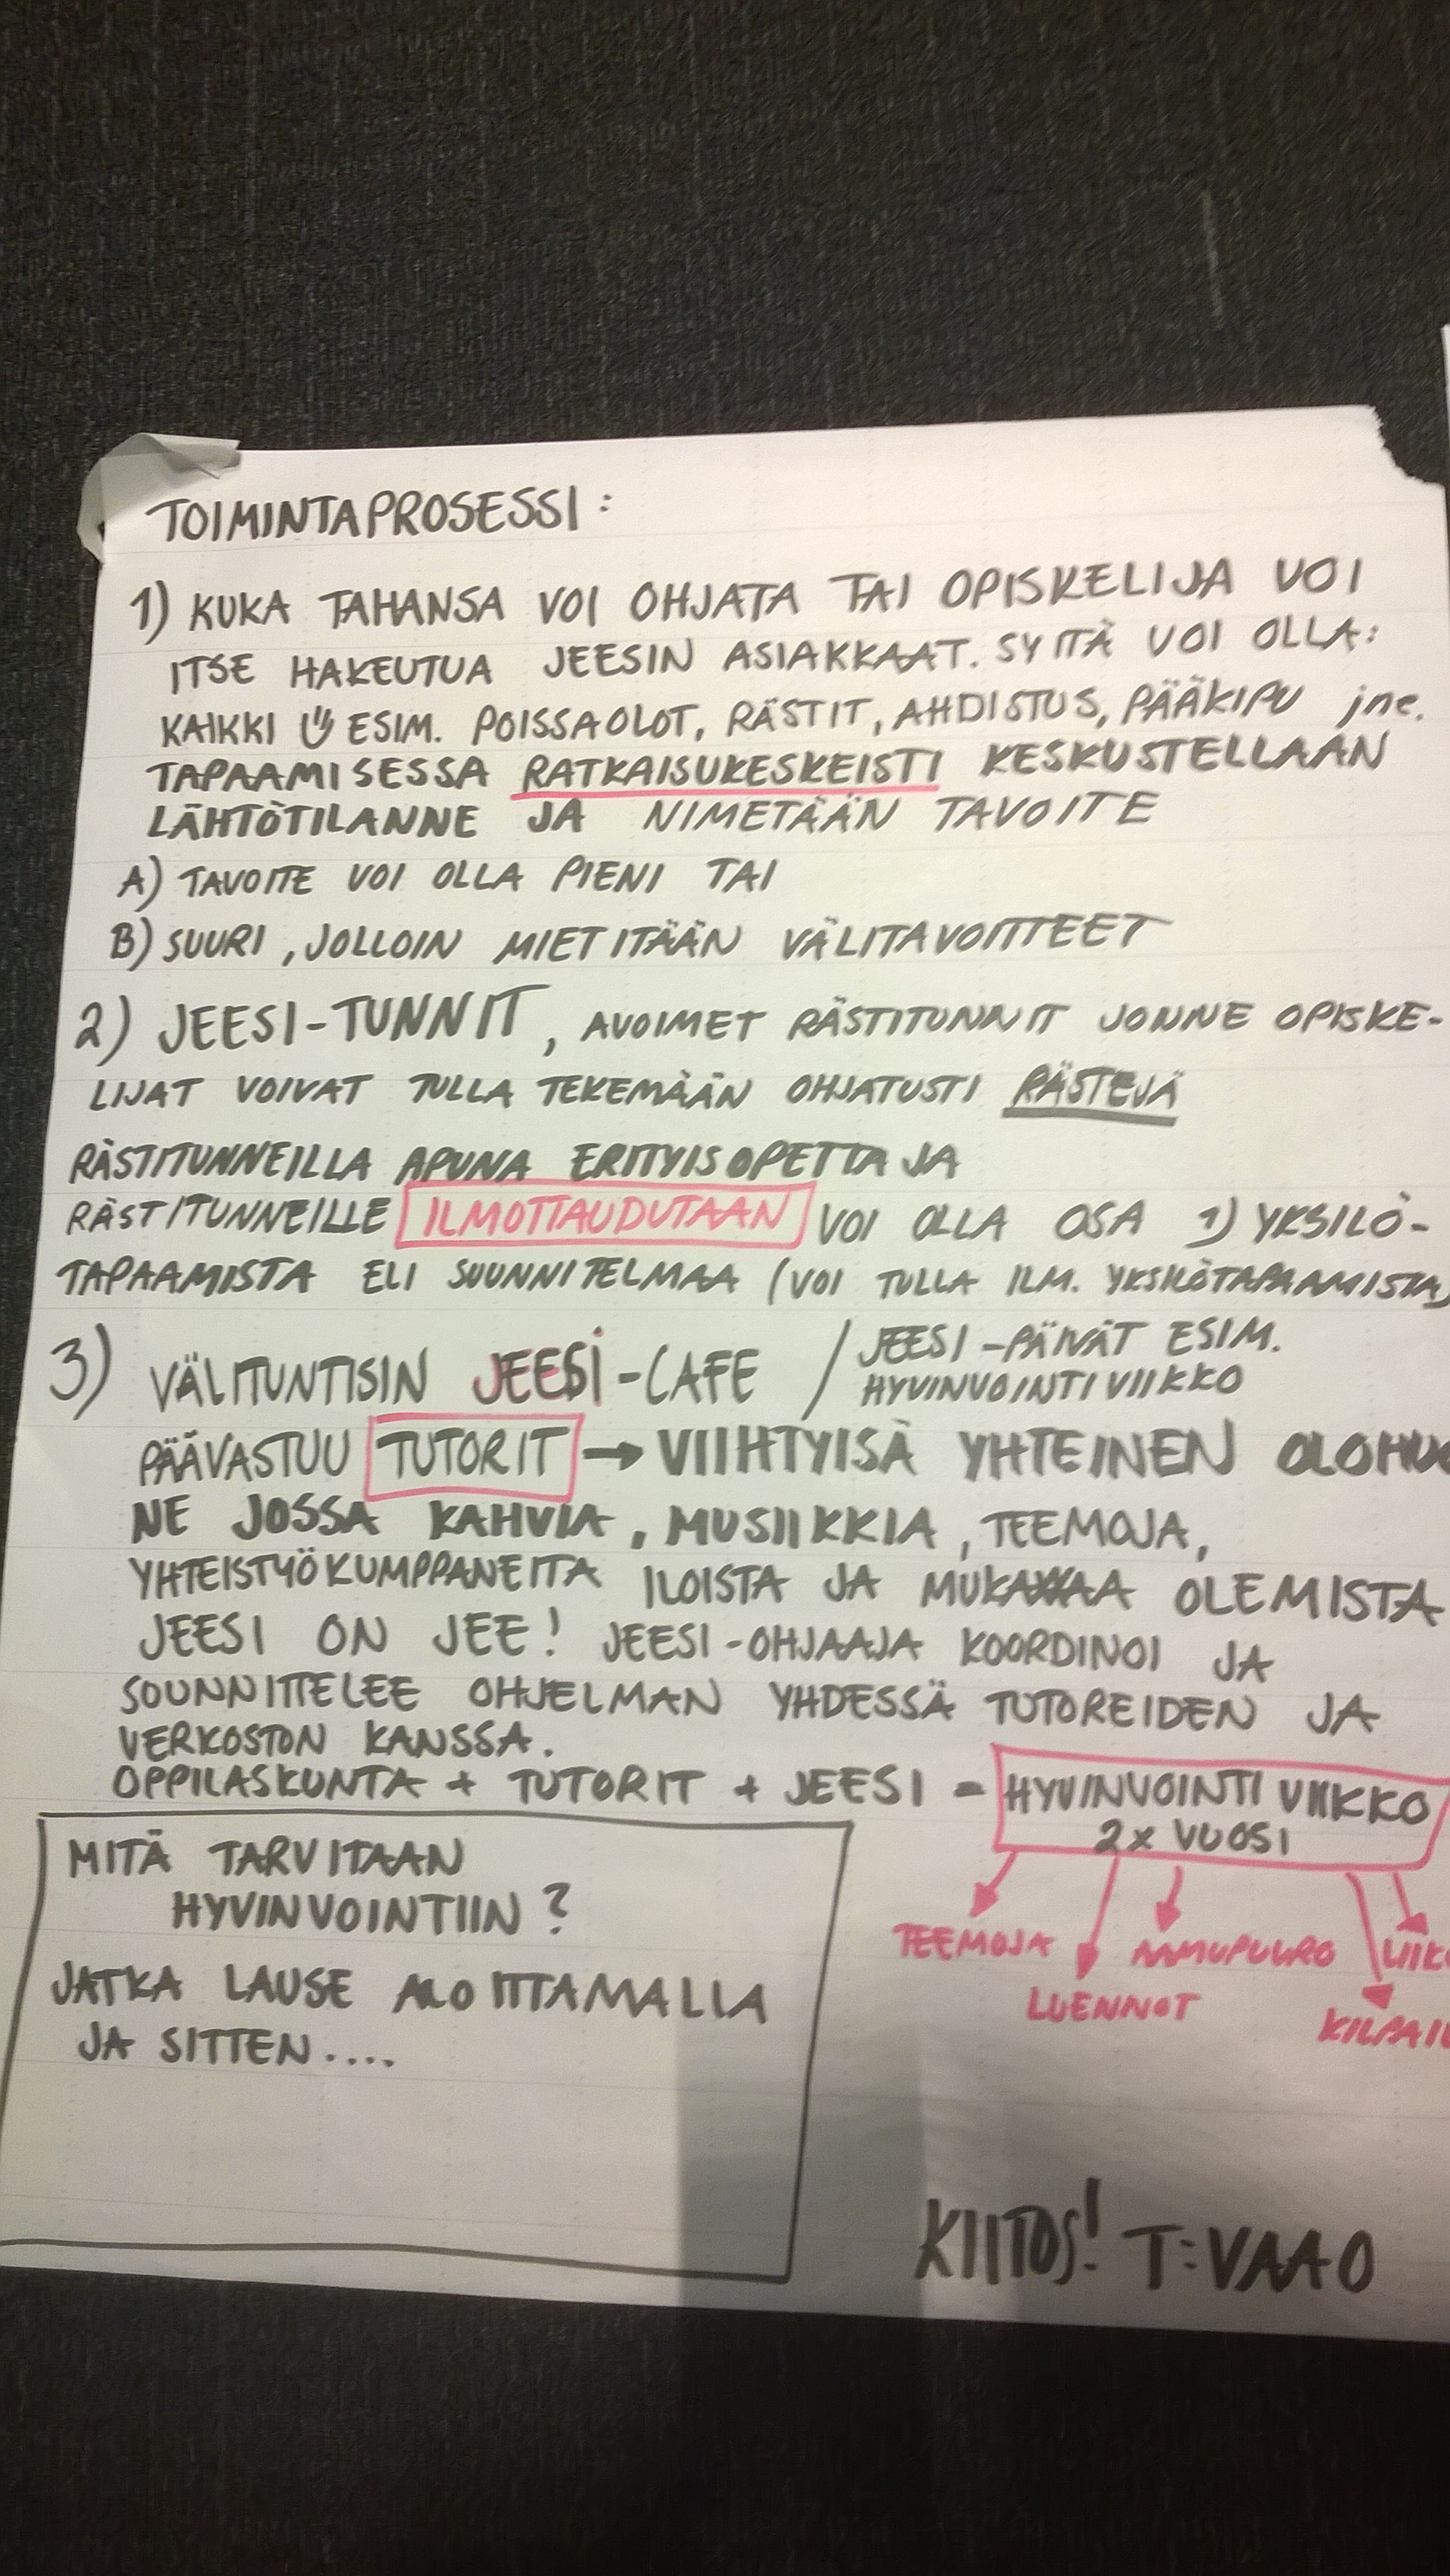 TOIMINTAPROSESSI:
1) KUKA TAHANSA VOI OHJATA TAI OPISKELIJA VOI
ITSE HAKEUTUA JEESIN ASIAKKAAT. SYITÄ VOI OLLA:
KAIKKI ESIM. POISSAOLOT, RÄSTIT, AHDISTUS, PÄÄKIPU jne.
TAPAAMISESSA RATKAISUKESKEISTI KESKUSTELLAAN
LÄHTÖTILANNE JA NIMETÄÄN TAVOITE
A) TAVOITE VOI OLLA PIENI TAI
B) SUURI, JOLLOIN MIETITÄÄN VÄLITAVOITTEET
2) JEESI-TUNNIT, AVOIMET RÄSTITUNNIT JONNE OPISKE-
LIJAT VOIVAT TULLA TEKEMÄÄN OHJATUSTI RÄSTEJÄ
RÄSTITUNNEILLA APUNA ERITYISOPETTAJA
RÄSTITUNNEILLE ILMOTTAUDUTAAN VOI OLLA OSA 1) YKSILÖ-
TAPAAMISTA ELI SUUNNITELMAA (VOI TULLA ILM. YKSILÖTAPAAMISTA)
3) VÄLITUNTISIN JEESI-CAFE / JEESI-PÄIVÄT ESIM.
HYVINVOINTIVIIKKO
PÄÄVASTUU TUTORIT → VIIHTYISÄ YHTEINEN OLOHUO
NE JOSSA KAHVIA, MUSIIKKIA, TEEMOJA,
YHTEISTYÖKUMPPANEITA ILOISTA JA MUKAVAA OLEMISTA
JEESI ON JEE! JEESI-OHJAAJA KOORDINOI JA
SUUNNITTELEE OHJELMAN YHDESSÄ TUTOREIDEN JA
VERKOSTON KANSSA.
OPPILASKUNTA + TUTORIT + JEESI = HYVINVOINTI VIIKKO
2x VUOSI
TEEMOJA AAMUPUURO LIIK
LUENNOT KILPAIL
MITÄ TARVITAAN
HYVINVOINTIIN?
JATKA LAUSE ALOITTAMALLA
JA SITTEN....
KIITOS! T:VAAO